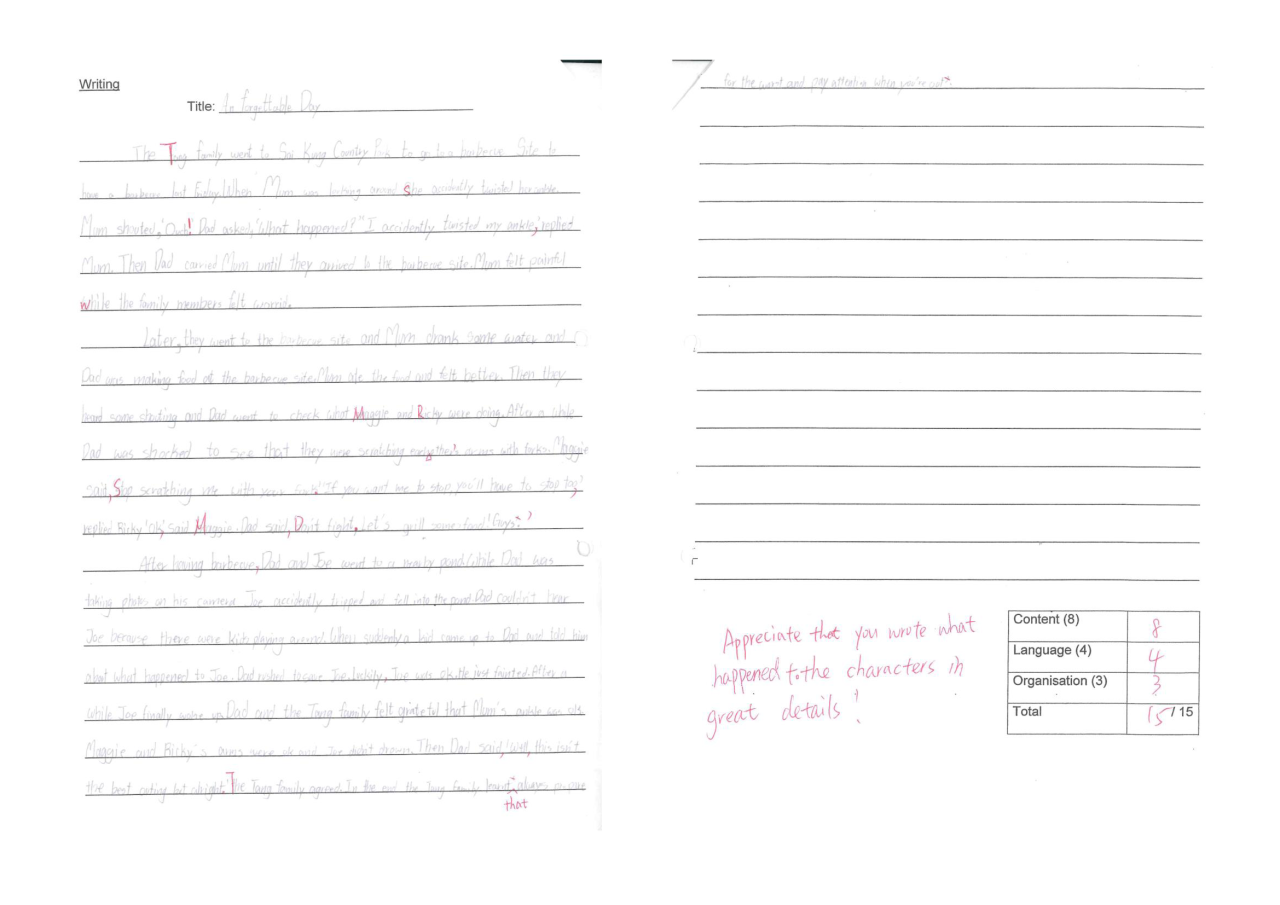 Writing
Title: An forgettable Day
The Tang family went to Sai Kung Country Park to go to a barbecue site to
have a barbecue last Friday. When Mum was looking around She accidently twisted her ankle.
Mum shouted, 'Ouch! Dad asked, 'What happened?" I accidently twisted my ankle,' replied
Mum. Then Dad carried Mum until they arrived to the barbecue site. Mum felt painful
while the family members felt worried.
Later, they went to the barbecue site and Mum drank some water and
Dad was making food at the barbecue site. Mum ate the food and felt better. Then they
heard some shouting and Dad went to check what Maggie and Ricky were doing. After a while
Dad was shocked to see that they were scratching each other's arms with forks. Maggie
said, Stop scratching me with your fork!' 'If you want me to stop, you'll have to stop too,'
replied Ricky 'Ok,' said Maggie. Dad said, Don't fight, Let's grill some food! Guys.'
After having barbecue, Dad and Joe went to a nearby pond. While Dad was
taking photos on his camera Joe accidently tripped and fell into the pond. Dad couldn't hear
Joe because there were kids playing around. When suddenly a kid came up to Dad and told him
about what happened to Joe. Dad rushed to save Joe. Luckily, Joe was ok. He just fainted. After a
while Joe finally woke up. Dad and the Tang family felt grateful that Mum's ankle was ok
Maggie and Ricky's arms were ok and Joe didn't drown. Then Dad said, 'Well, this isn't
the best outing but alright.' The Tang family agreed. In the end the Tang family learnt always prepare
that
for the worst and pay attention when you're out
Appreciate that you wrote what
happened to the characters in
great details!
Content (8) 8
Language (4) 4
Organisation (3) 3
Total 15 / 15